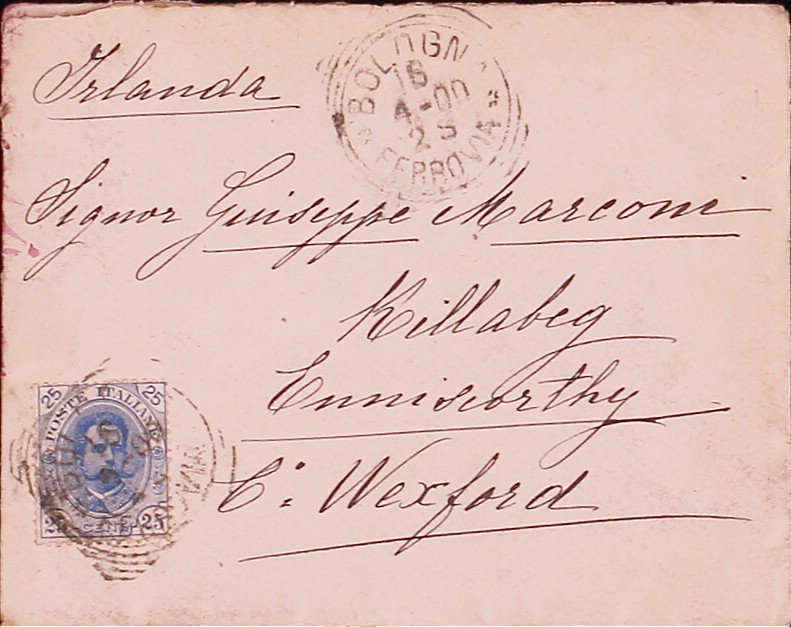 Irlanda
BOLOGNA
16
4-00
2S
FERROVIA
Signor Guiseppe Marconi
Killabeg
Enniscorthy
Co: Wexford
25 25
POSTE ITALIANE
25 CENT. 25